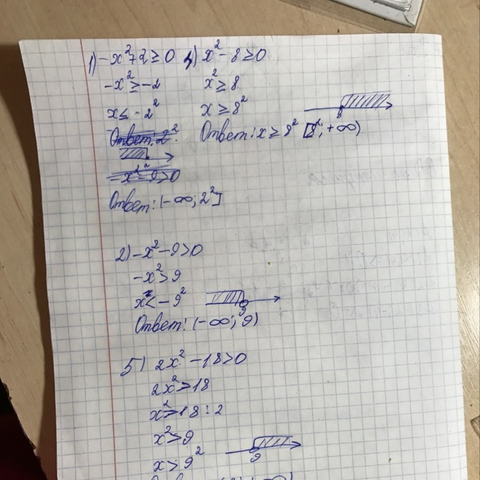 1) -x²+2≥0
-x²≥-2
x≤-2²
Ответ: 2²
-x²-9>0
Ответ: (-∞; 2²]
4) x²-8≥0
x²≥8
x≥8²
8
Ответ: x≥8² [8²; +∞)
2) -x²-9>0
-x²>9
x²<-9²
9
Ответ: (-∞; 9)
5) 2x²-18>0
2x²>18
x²>18:2
x²>9
x>9²
9